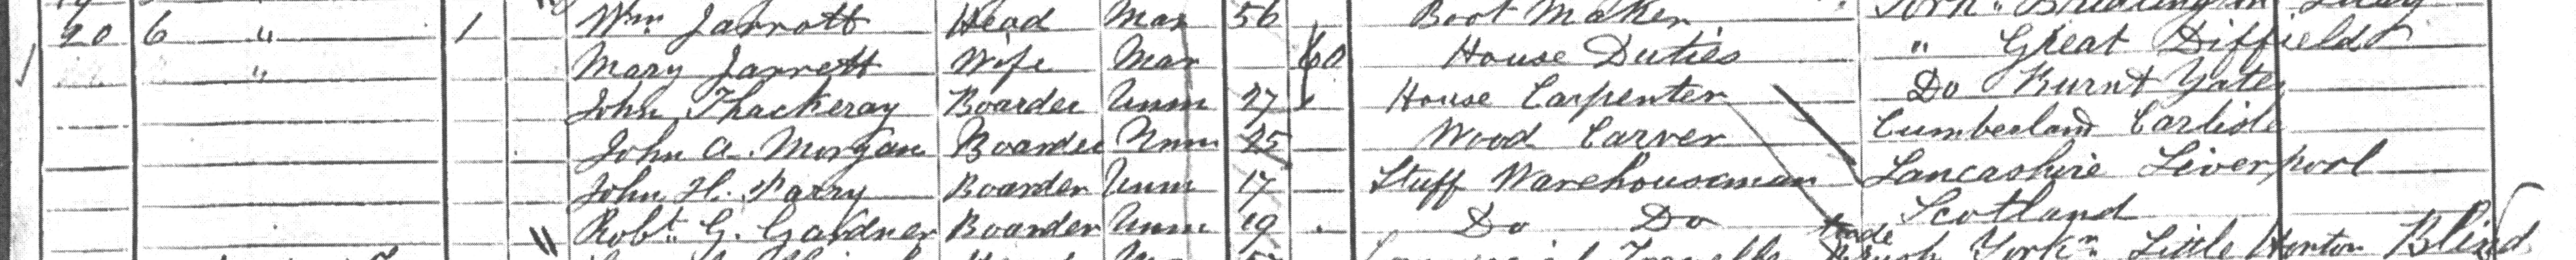 20 6 " 1 Wm Jarrott Head Mar 56 Boot Maker York" Bridlington Quay
" Mary Jarrett Wife Mar 60 House Duties " Great Diffield
John Thackeray Boarder Unm 27 House Carpenter Do Burnt Yates
John A. Morgan Boarder Unm 25 Wood Carver Cumberland Carlisle
John H. Parry Boarder Unm 17 Stuff Warehouseman Lancashire Liverpool
Robt G. Gardner Boarder Unm 19 Do Do Scotland
trade Little Horton Blind